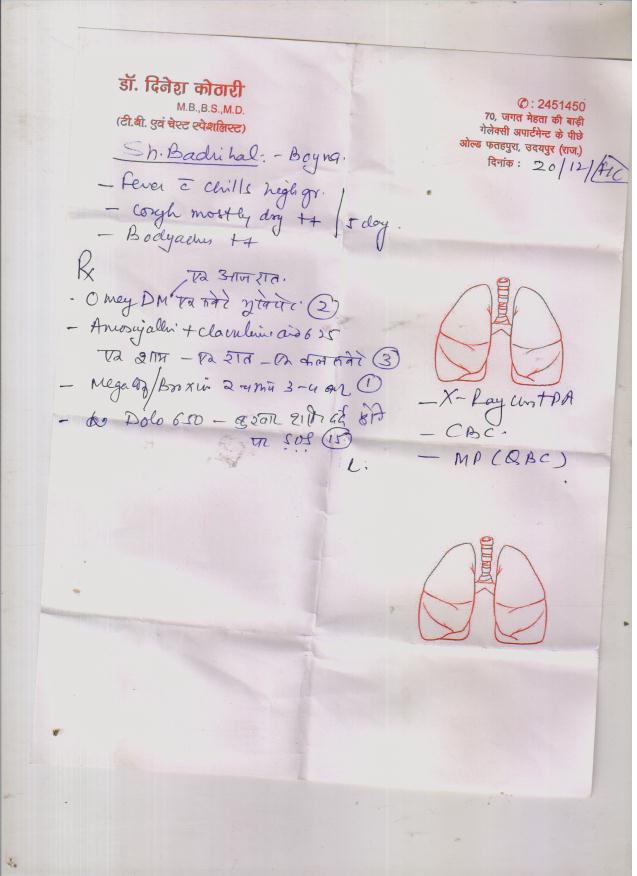 डॉ. दिनेश कोठारी
M.B.,B.S.,M.D.
(टी.बी. एवं चेस्ट स्पेशलिस्ट)
✆: 2451450
70, जगत मेहता की बाड़ी
गेलेक्सी अपार्टमेन्ट के पीछे
ओल्ड फतहपुरा, उदयपुर (राज.)
दिनांक : 20/12/
Sh. Badrihal. -
- Fever c̄ chills high gr.
- Cough mostly dry ++ 5 day.
- Bodyaches ++
Rx
एक आज रात.
· Omey DM एक सवेरे भूखे पेट. (2)
- + 625
एक शाम - एक रात - एक कल सवेरे (3)
- 2 चम्मच 3-4 बार (1)
- Dolo 650 - बुखार दर्द होने
पर SOS (15)
- X-Ray chest PA
- CBC.
- MP (QBC)